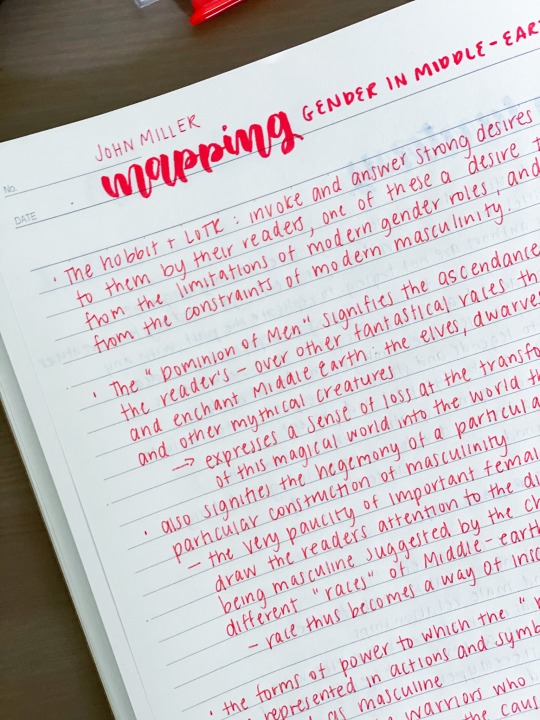 JOHN MILLER
mapping GENDER IN MIDDLE-EAR
No.
DATE
· The hobbit + LOTR : invoke and answer strong desires
to them by their readers, one of these a desire t
from the limitations of modern gender roles, and
from the constraints of modern masculinity.
· The "Dominion of Men" signifies the ascendance
the reader's - over other fantastical races th
and enchant Middle Earth: the elves, dwarves
and other mythical creatures
→ expresses a sense of loss at the transfo
of this magical world into the world th
· also signifies the hegemony of a particula
particular construction of masculinity
- the very paucity of important femal
draw the readers attention to the di
being masculine suggested by the ch
different "races" of Middle-earth
- race thus becomes a way of insc
· the forms of power to which the "
represented in actions and symb
as masculine
warriors who
the caus